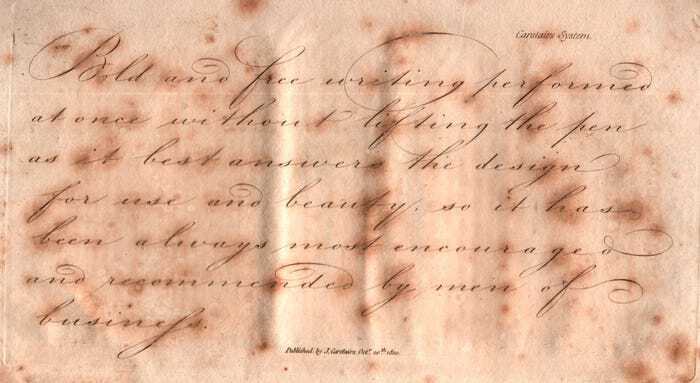 Carstairs System.
Bold and free writing performed
at once without lifting the pen
as it best answers the design
for use and beauty; so it has
been always most encouraged
and recommended by men of
business.
Published by J. Carstairs, Octr.